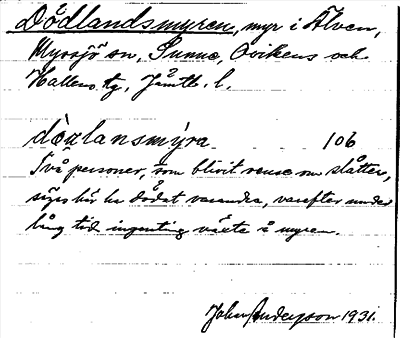 Dödlandsmyren, myr i Älven,
Myrsjö sn, Sunne, Ovikens och
Hallens tg, Jämtl. l.
dö̀ᶎlansmýra 106
Två personer, som blivit osense om slåtter,
säges här ha dödat varandra, varefter under
lång tid ingenting växte å myren.
John Anderson 1931.